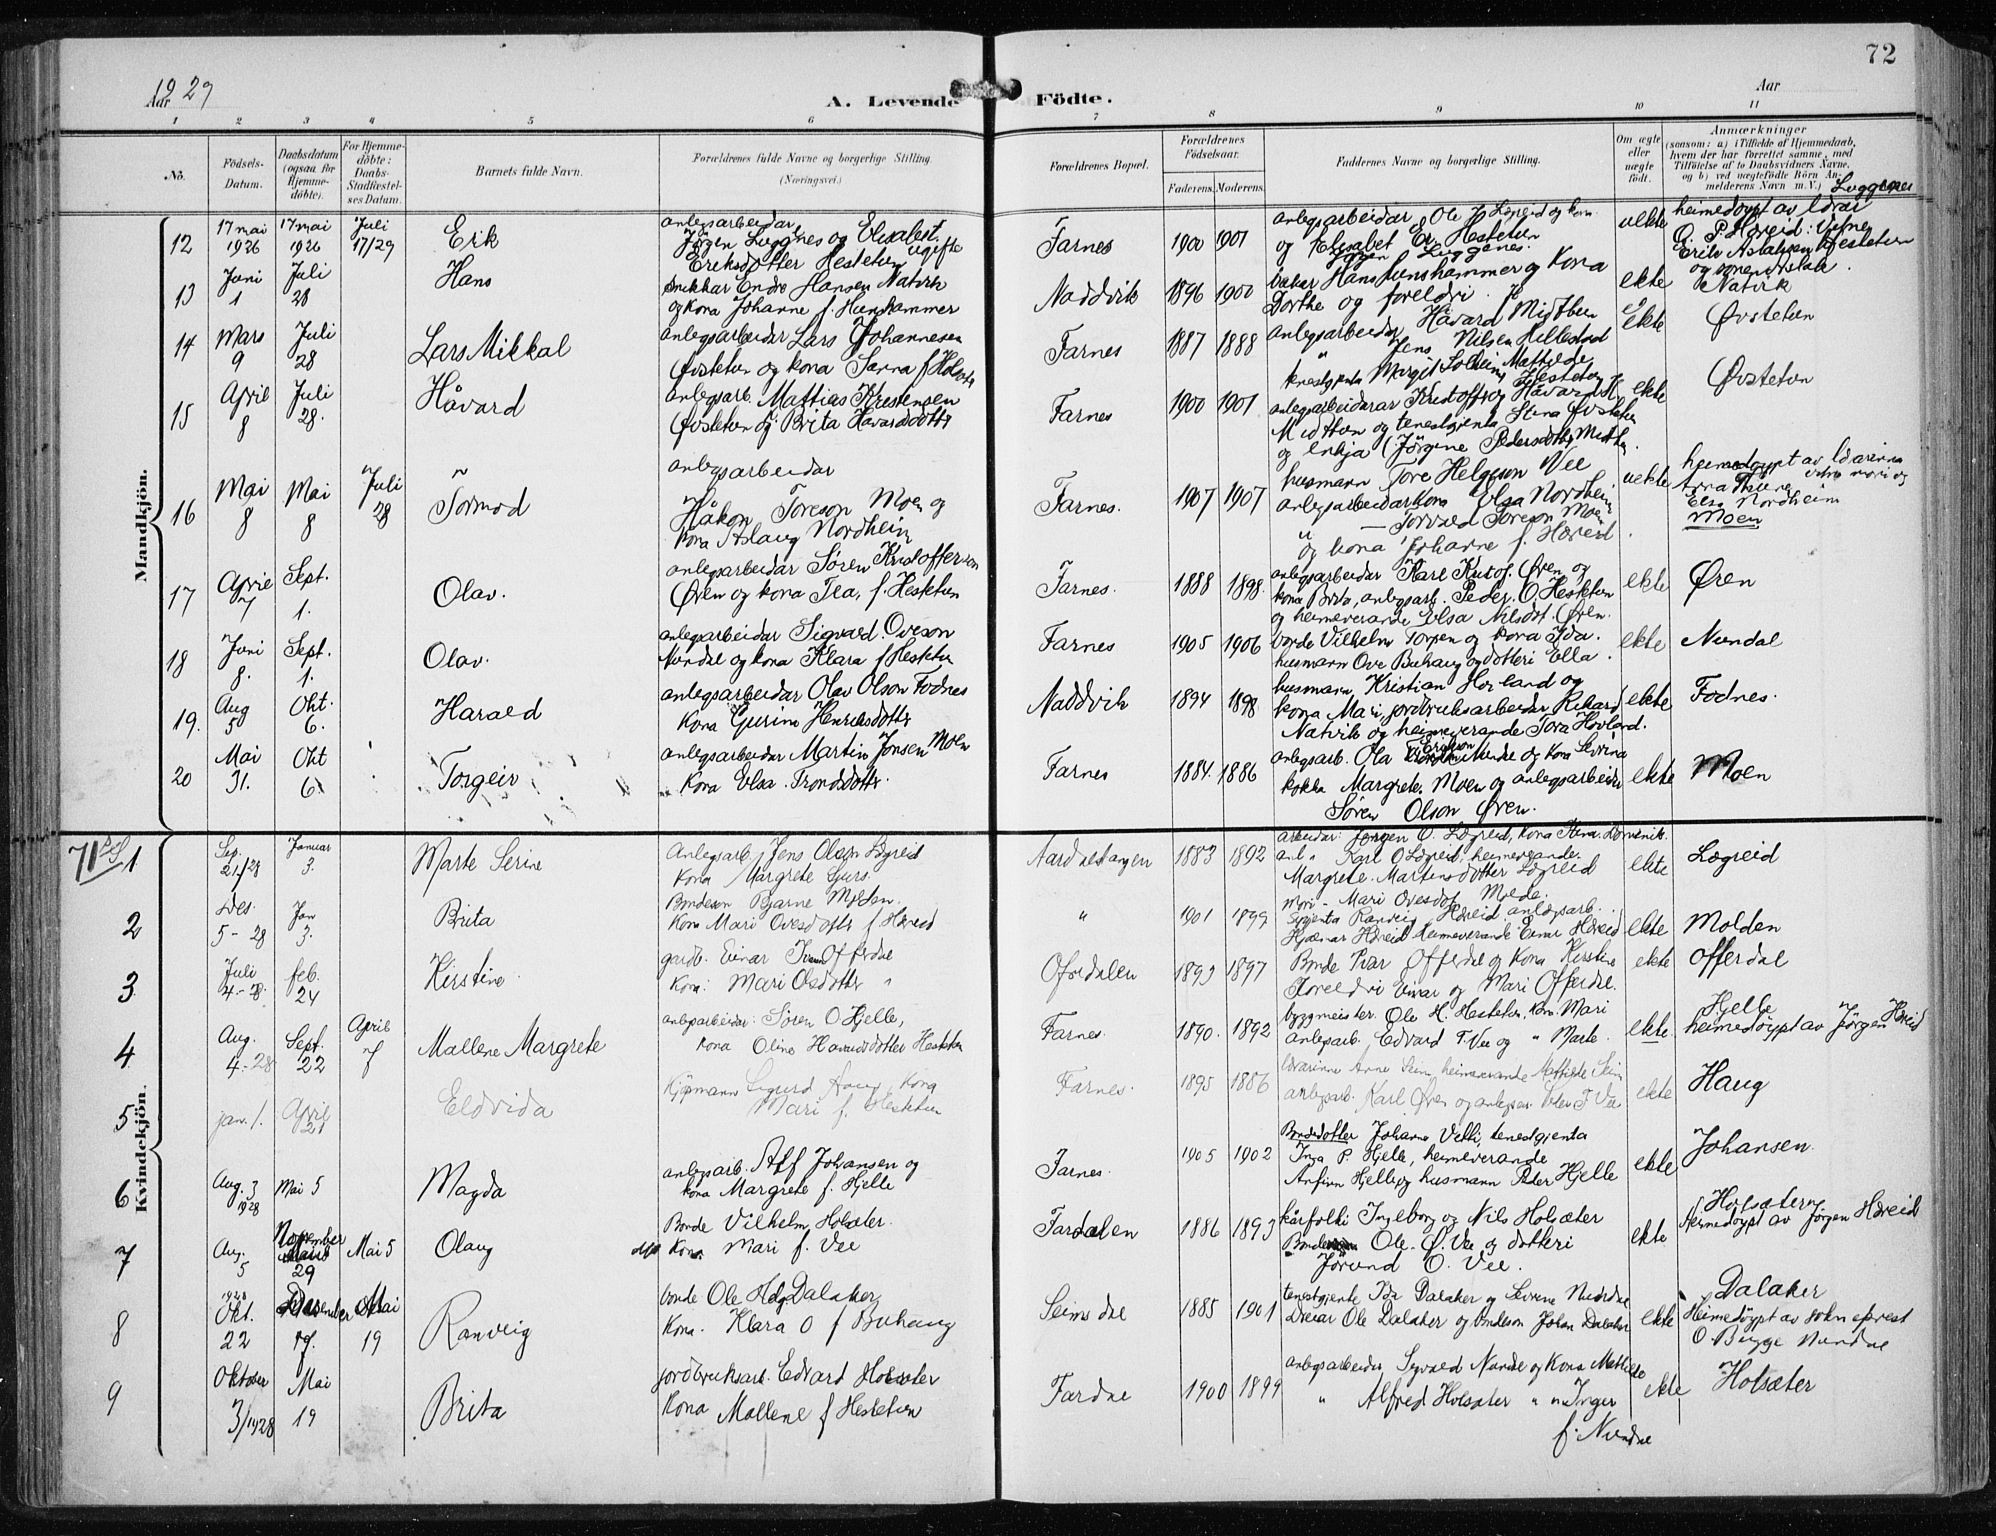 72
Aar 1929
A. Levende Födte.
Aar
1 2 3 4 5 6 7 8 9 10 11
No.
Födsels-Datum.
Daabsdatum (ogsaa for Hjemme-döbte).
For Hjemme-döbte: Daabs-Stadfæstel-ses Datum.
Barnets fulde Navn.
Forældrenes fulde Navne og borgerlige Stilling. (Næringsvei.)
Forældrenes Bopæl.
Forældrenes Födselsaar.
Faderens. Moderens.
Faddernes Navne og borgerlige Stilling.
Om ægte eller uægte födt.
Anmærkninger
(saasom: a) i Tilfælde af Hjemmedaab, hvem der har forrettet samme, med Tilföielse af to Daabsvidners Navne, og b) ved uægtefödte Börn An-melderens Navn m. V.)
Mandkjön.
12 17 mai 1926 17 mai 1926 Juli 17/29 Erik
anlegsarbeidar
Jørgen Luggnes og Elisabet
Eriksdotter Hestetun ugifte
Farnes 1900 1901
anlegsarbeidar Ole J Lægreid og kona
og Elisabet Er. Hestetun
Jørgen Luggenes.
uekte
Luggenes
heimedøypt av
13 Juni 1 Juli 28 Hans
snikkar Endre Hansen Natvik
og kona Johanne f. Hunshammer
Naddvik 1896 1900
baker Hans Hunshammer og kona
Dorthe og foreldri.
ekte Natvik
14 Mars 9 Juli 28 Lars Mikkal
anlegsarbeidar Lars Johannesen
Øvstetun og kona Sanna f
Farnes 1887 1888
anlegsarbeidar Håvard Midtbun
" Jens Nilsen Hellestad
tenestgjenta Margit Solheim, Mathilde Hestetun
ekte Øvstetun
15 April 8 Juli 28. Håvard
anlegsarb. Mattias Kristensen
Øvstetun og Brita Håvardsdotter
Farnes 1900 1901
anlegsarbeidarar Kristoffer og Håvard
Midtbun og tenestgjenta Stina Øvstetun
og enkja Jørgine Pedersdotter Midtbun
ekte Øvstetun
16 Mai 8 Mai 8 Juli 28 Tormod
anlegsarbeidar
Håkon Toreson Moen og
kona Aslaug Nordheim
Farnes. 1907 1907
husmann Tore Helgeson Vee
anlegsarbeidarkona Elsa Nordheim
Torvald Toreson Moen
og kona Johanne f. Hæreid.
uekte
heimedøypt av
Elsa Nordheim
Moen
17 April 7 Sept. 1. Olav.
anlegsarbeidar Søren Kristofferson
Øren og kona Tea, f. Hestetun
Farnes. 1888 1898.
anlegsarbeidar Karl Kristof. Øren og
kona Brita, anlegsarb. Peder O Hestetun
og heimeverande Elsa Nilsdot. Øren.
ekte Øren
18 Juni 8. Sept. 1. Olav.
anlegsarbeidar Sigvard Oveson
Nundal og kona Klara f Hestetun
Farnes 1905 1906
bonde Vilhelm Torpen og kona Ida.
husmann Ove Buhaug og dotteri Ella.
ekte Nundal
19. Aug 5 Okt. 6. Harald
anlegsarbeidar Olav Olson Fodnes
Kona Gurine Henriksdotter
Naddvik 1894 1898
husmann Kristian Hovland og
kona Mari, jordbruksarbeidar Rikard
Natvik og heimeverande Tora Hovland.
ekte Fodnes.
20 Mai 31. Okt 6. Torgeir
anlegsarbeidar Martin Jonsen Moen
Kona Elsa Trondsdotter.
Farnes 1884. 1886
anlegsarb. Ola Erikson Nundal og kona Severina
kokka Margrete Moen og anlegsarbeidar
Søren Olson Øren.
ekte Moen
Kvindekjön.
1 Sep. 21/28 Januar 3. Marta Serine
Anlegsarb. Jens Olsen Lægreid
Kona Margrete
Aardalstangen 1883 1892
arbeidar: Jørgen O. Lægreid, kona Stina
anl " Karl O Lægreid, heimeverande
Margrete Martensdotter Lægreid
ekte Lægreid
2 Des. 5-28 Jan 3. Brita
Bondeson Bjarne Molden.
Kona Mari Ovesdotter f. Hæreid
" 1901 1899
Mari Ovesdot.
Sygjenta Ranveig Hæreid anlegsarb.
Hjalmar Hæreid heimeverande Einar Hæreid
ekte Molden
3 Juli 4-28. feb. 24 Kirstine.
gardb. Einar Ivars Offerdal
Kona: Mari Olsdotter "
Ofredalen 1893 1897
Bonde Ivar Offerdal og kona Kirstine
Foreldri Einar og Mari Offerdal.
ekte Offerdal
4 Aug. 4-28 Sept. 22 April 7 Mallene Margrete
anlegsarbeidar: Søren O Hjelle,
kona Oline Havardsdotter Hestetun
Farnes. 1890. 1892
byggmeister Ole H. Hestetun, kona Mari
anlegsarb. Edvard T. Vee og " Marta
ekte.
Hjelle
heimedøypt av Jørgen Hæreid
5 jan. 1. April 21 Eldvida
Kjøpmann Sigurd Haug, Kona
Mari f. Hestetun
Farnes. 1895 1886
Arne Seim, heimeverande Mathilde Seim
anlegsarb. Karl Øren og
ekte Haug
6 Aug. 3 1928 Mai 5 Magda
anlegsarb. Alf Johansen og
kona Margrete f. Hjelle
Farnes. 1905 1902
Bondedotter Johanna Vetti, tenestgjenta
Inga P. Hjelle, heimeverande
Anfinn Hjelle og husmann Peder Hjelle
ekte Johansen.
7 Aug. 5 November 29 Mai 5 Olaug
Bonde Vilhelm Holsæter.
Kona Mari f. Vee
Fardalen 1886 1893
kårfolki Ingeborg og Nils Holsæter
Bonde Ole Ø. Vee og dotteri
Jørund O. Vee.
ekte
Holsætern
heimedøypt av Jørgen Hæreid
8 1928 Okt. 22 Desember 17. Mai 19 Ranveig
bonde Ole Dalaker
Kona. Klara O f Buhaug
Seimdal 1885 1901
tenestgjente Ida Dalaker og Severine Nundal
Ole Dalaker og bondeson Johan Dalaker
ekte
Dalaker
Heimedøypt av sokneprest
O Bugge Nundal
9 Oktober 3/1928 Mai 19 Brita
jordbruksarb. Edvard Holsæter
Kona Mallene f Hestetun
Fardal 1900 1899
anlegsarbeidar Sigvald Nundal og Kona Mathilde
" Alfred Holsæter " " Inger
f. Nundal
ekte Holsæter